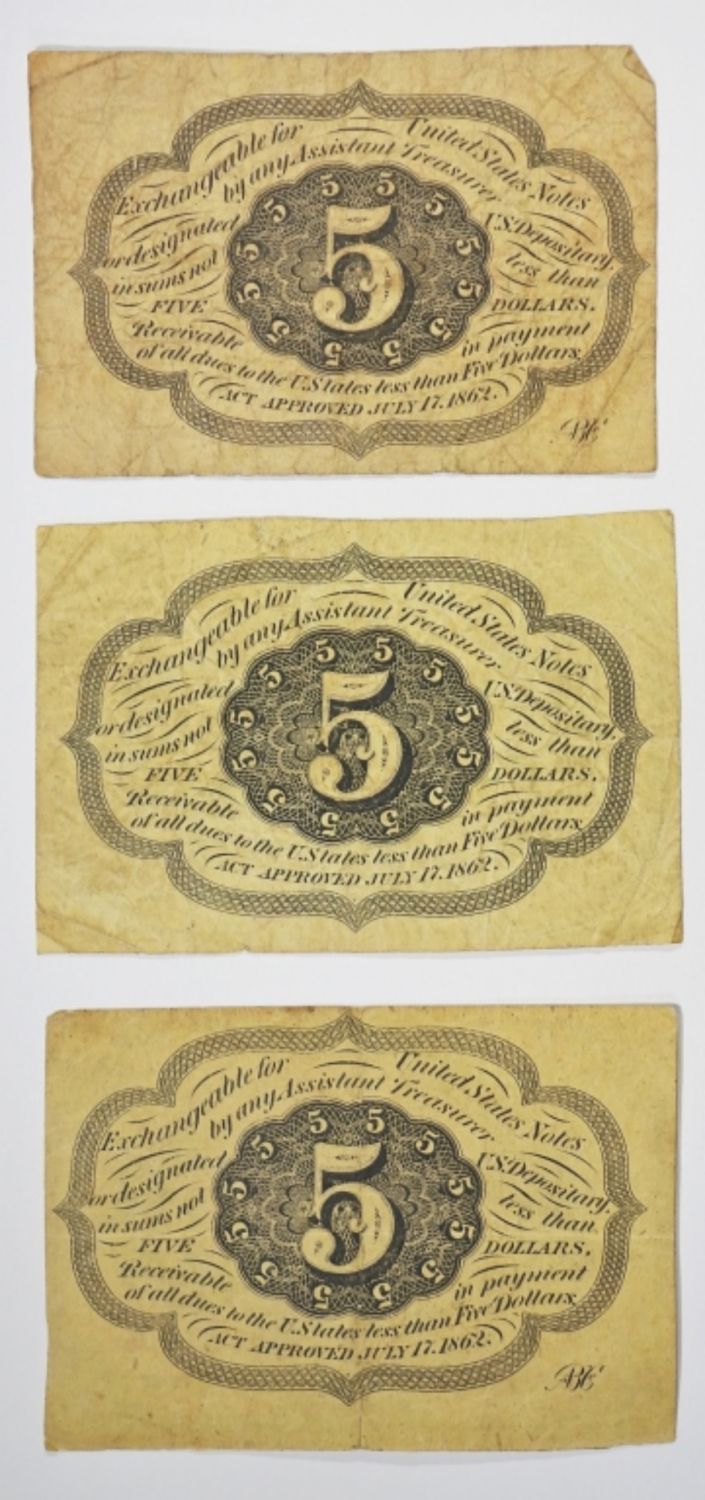 Exchangeable for United States Notes
by any Assistant Treasurer
or designated U.S. Depositary,
in sums not less than
FIVE DOLLARS.
Receivable in payment
of all dues to the U. States less than Five Dollars.
ACT APPROVED JULY 17, 1862.
5 5 5 5 5 5 5 5 5 5 5 5
5
ABC°
Exchangeable for United States Notes
by any Assistant Treasurer
or designated U.S. Depositary,
in sums not less than
FIVE DOLLARS.
Receivable in payment
of all dues to the U. States less than Five Dollars.
ACT APPROVED JULY 17, 1862.
5 5 5 5 5 5 5 5 5 5 5 5
5
Exchangeable for United States Notes
by any Assistant Treasurer
or designated U.S. Depositary,
in sums not less than
FIVE DOLLARS.
Receivable in payment
of all dues to the U. States less than Five Dollars.
ACT APPROVED JULY 17, 1862.
5 5 5 5 5 5 5 5 5 5 5 5
5
ABC°